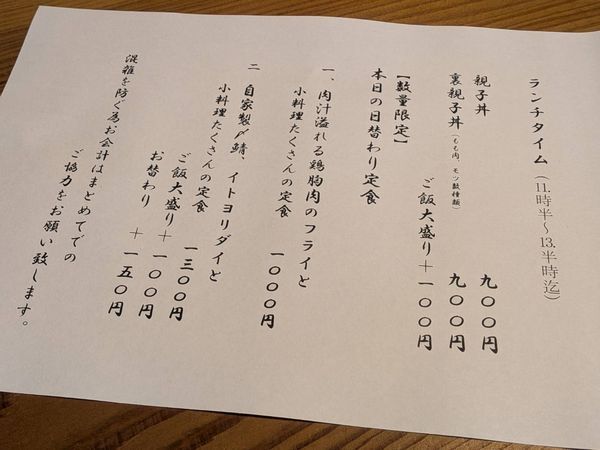 ランチタイム(11.時半〜13.半時迄)
親子丼 九〇〇円
裏親子丼(もも肉、モツ数種類) 九〇〇円
ご飯大盛り+一〇〇円
【数量限定】
本日の日替わり定食
一、肉汁溢れる鶏胸肉のフライと
小料理たくさんの定食 一〇〇〇円
二 自家製〆鯖、イトヨリダイと
小料理たくさんの定食 一三〇〇円
ご飯大盛り+一〇〇円
お替わり +一五〇円
混雑を防ぐ為お会計はまとめてでの
ご協力をお願い致します。